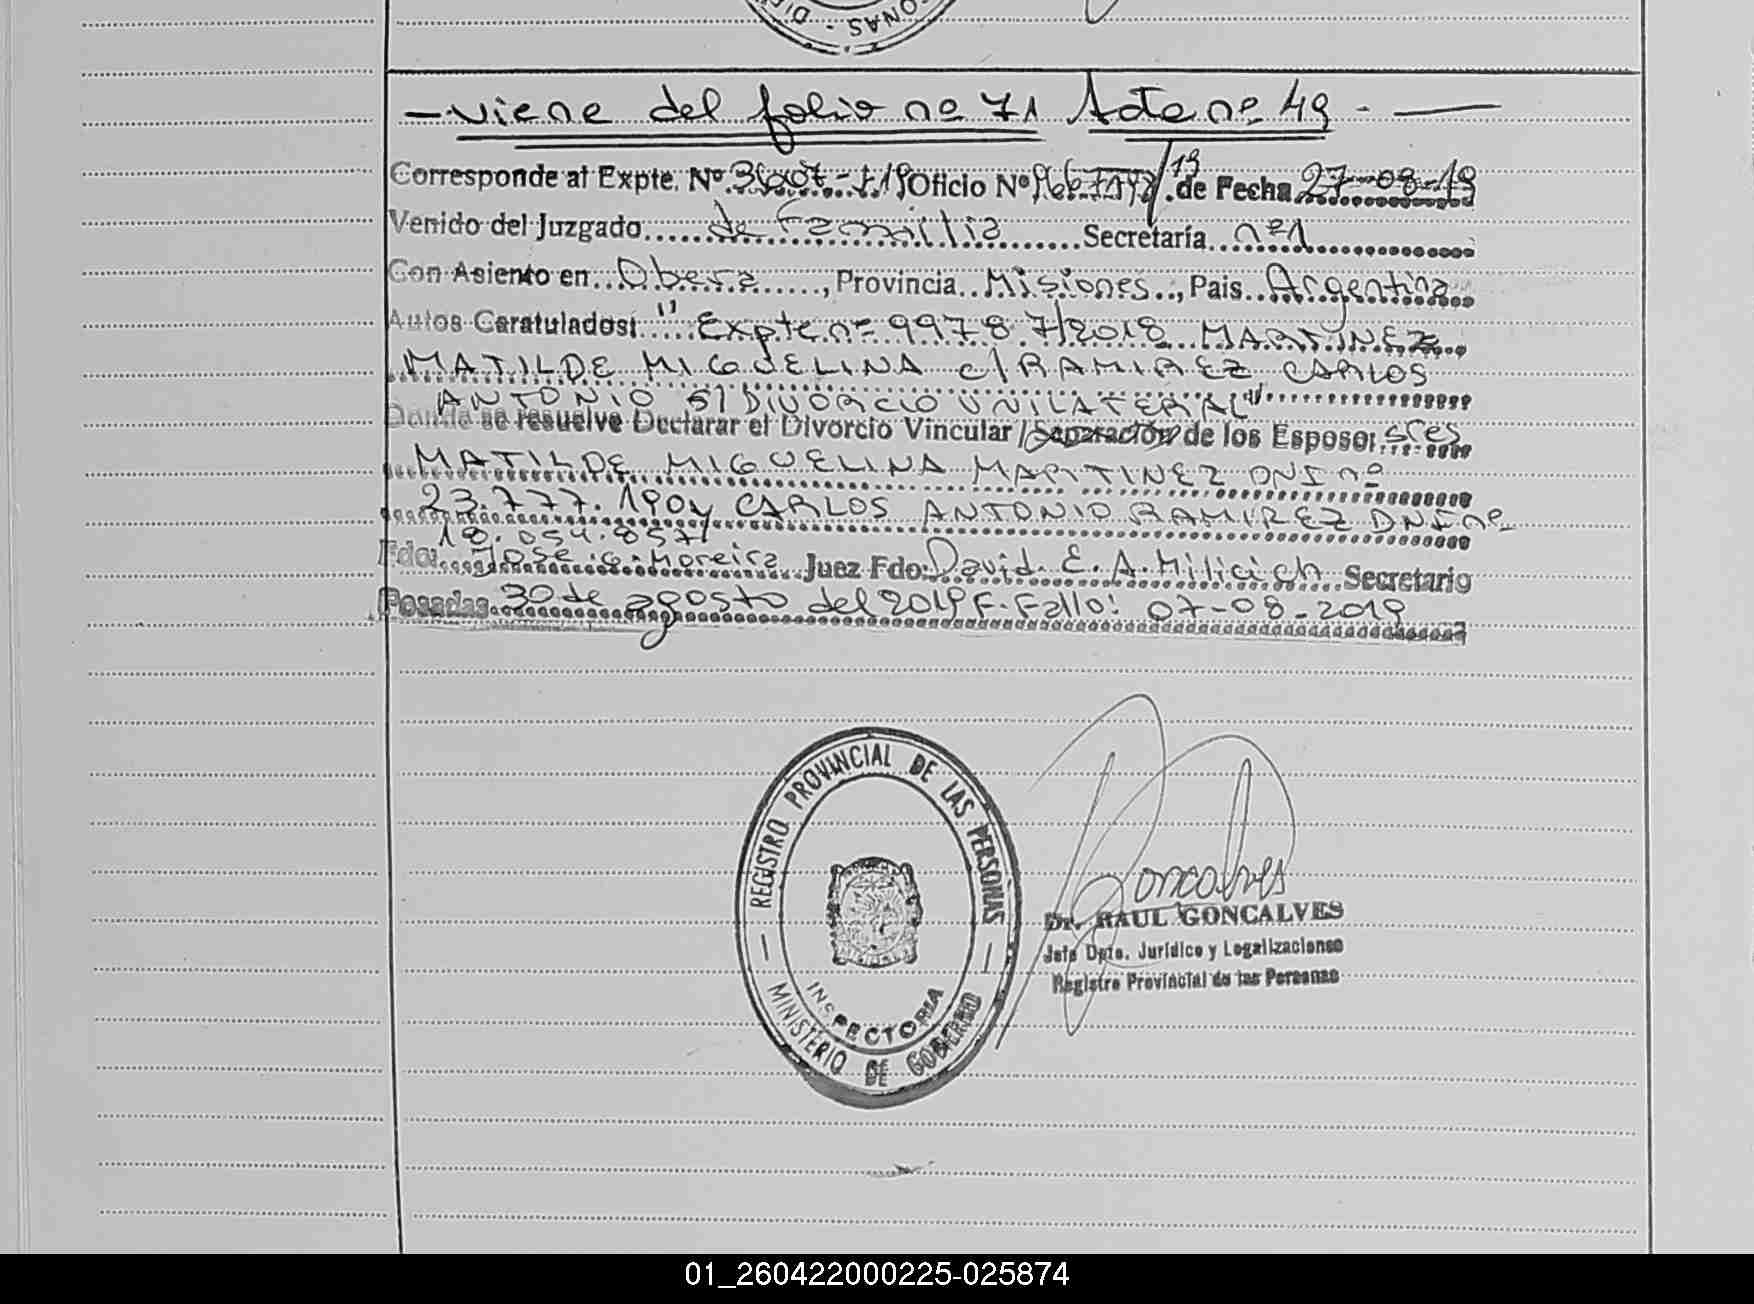 ONAS - DI
- viene del folio nº 71 Acta nº 49 -
Corresponde at Expte. Nº Oficio Nº /19 de Fecha 27-08-19
Venido del Juzgado de Familia Secretaría nº1
Con Asiento en Obera, Provincia Misiones, Pais Argentina
Autos Caratulados: "Expte nº 99787/2018 MARTINEZ
MATILDE MIGUELINA c/ RAMIREZ CARLOS
ANTONIO s/ DIVORCIO UNILATERAL"
Donde se resuelve Declarar el Divorcio Vincular / Separación de los Esposos sres
MATILDE MIGUELINA MARTINEZ DNI nº
23.777.190 y CARLOS ANTONIO RAMIREZ DNI nº
18.054.857
Fdo: Jose G. Moreira Juez Fdo: David E. A. Milicich Secretario
Posadas 30 de agosto del 2019 F. Fallo: 07-08-2019
REGISTRO PROVINCIAL DE LAS PERSONAS
INSPECTORIA
MINISTERIO DE GOBIERNO
Goncalves
Dr. RAUL GONCALVES
Jefe Dpto. Jurídico y Legalizaciones
Registro Provincial de las Personas
01_260422000225-025874